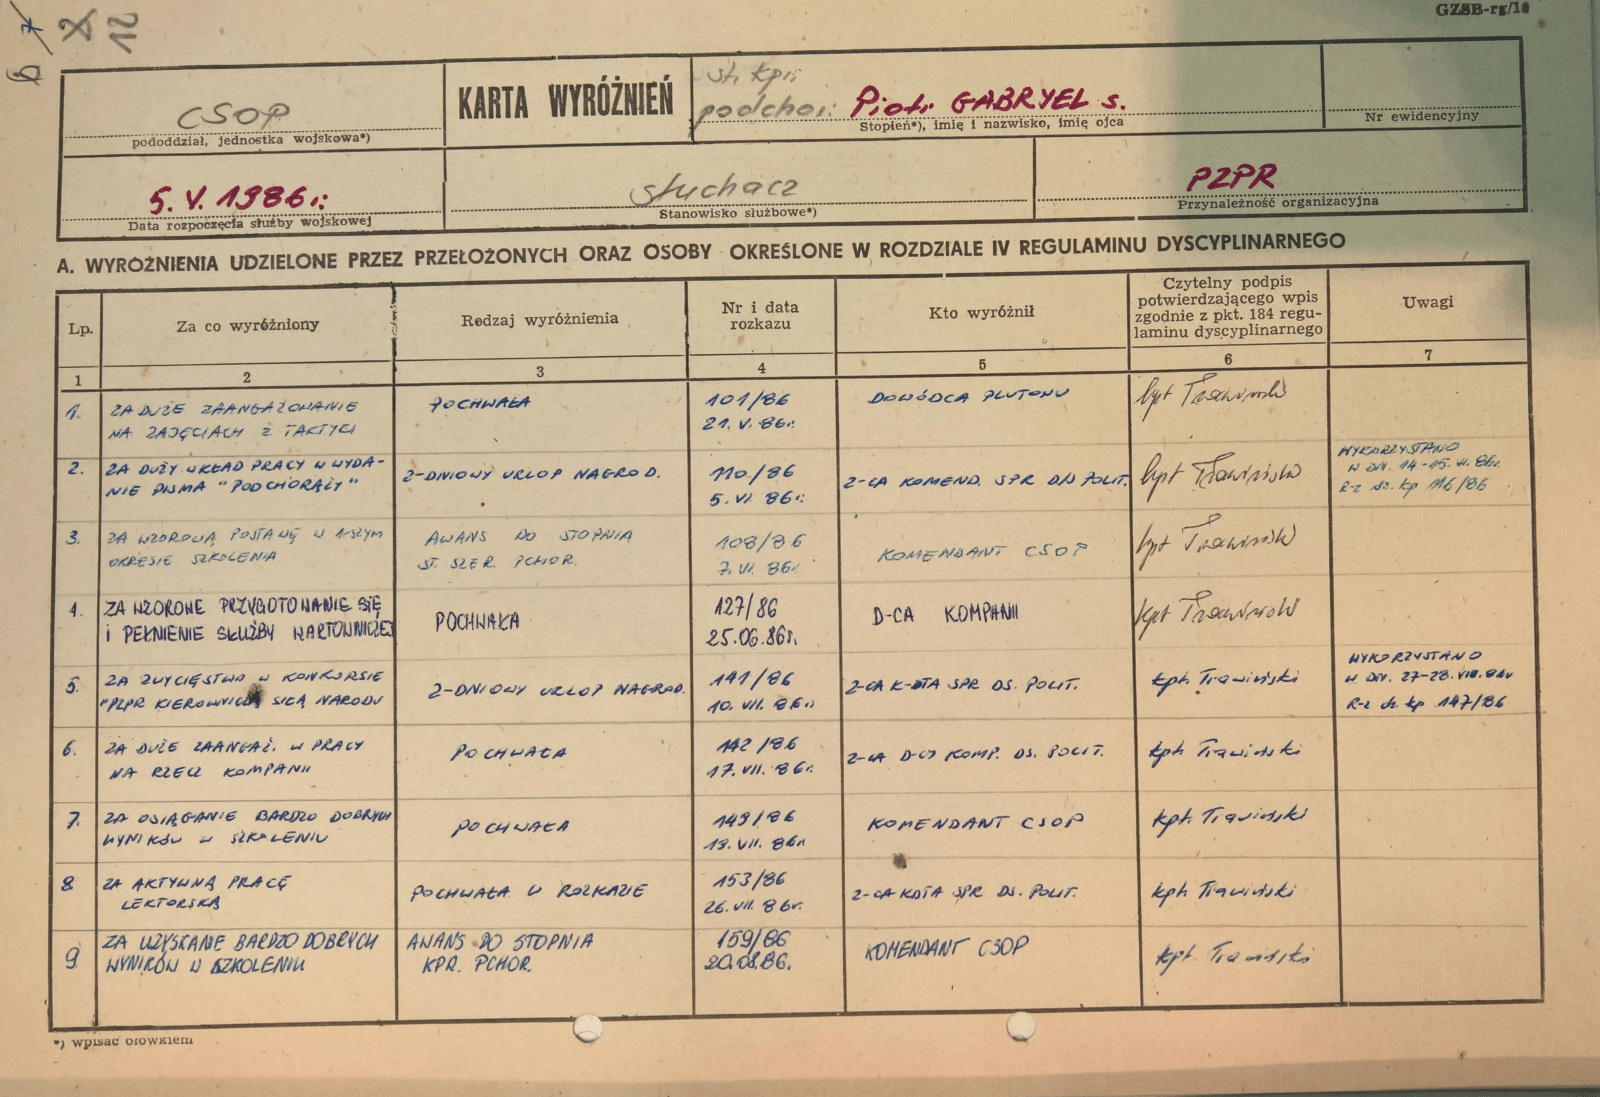 GZSB-rg/18
7
6
X
12
CSOP
pododdział, jednostka wojskowa*)
KARTA WYRÓŻNIEŃ
st. kpr.
podchor. Piotr GABRYEL s.
Stopień*), imię i nazwisko, imię ojca
Nr ewidencyjny
5. V. 1986r.
Data rozpoczęcia służby wojskowej
słuchacz
Stanowisko służbowe*)
PZPR
Przynależność organizacyjna
A. WYRÓŻNIENIA UDZIELONE PRZEZ PRZEŁOŻONYCH ORAZ OSOBY OKREŚLONE W ROZDZIALE IV REGULAMINU DYSCYPLINARNEGO
Lp.
Za co wyróżniony
Rodzaj wyróżnienia
Nr i data
rozkazu
Kto wyróżnił
Czytelny podpis
potwierdzającego wpis
zgodnie z pkt. 184 regu-
laminu dyscyplinarnego
Uwagi
1 2 3 4 5 6 7
1. ZA DUŻE ZAANGAŻOWANIE
NA ZAJĘCIACH Z TAKTYKI
POCHWAŁA
101/86
21. V. 86r.
DOWÓDCA PLUTONU
kpt Trawiński
2. ZA DUŻY WKŁAD PRACY W WYDA-
NIE PISMA "PODCHORĄŻY"
2-DNIOWY URLOP NAGROD.
110/86
5. VI. 86r.
Z-CA KOMEND. SPR DS POLIT.
kpt Trawiński
WYKORZYSTANO
W DN. 14-15. VI. 86r.
R-z sz. kp 116/86
3. ZA WZOROWĄ POSTAWĘ W 1-SZYM
OKRESIE SZKOLENIA
AWANS DO STOPNIA
ST. SZER. PCHOR.
108/86
7. VI. 86r.
KOMENDANT CSOP
kpt Trawiński
4. ZA WZOROWE PRZYGOTOWANIE SIĘ
I PEŁNIENIE SŁUŻBY WARTOWNICZEJ
POCHWAŁA
127/86
25.06.86r.
D-CA KOMPANII
kpt Trawiński
5. ZA ZWYCIĘSTWO W KONKURSIE
"PZPR KIEROWNICZĄ SIŁĄ NARODU
2-DNIOWY URLOP NAGROD.
141/86
10. VII. 86r.
Z-CA K-DTA SPR DS. POLIT.
kpt. Trawiński
WYKORZYSTANO
W DN. 27-28. VIII. 86r
R-z sz kp 147/86
6. ZA DUŻE ZAANGAŻ. W PRACY
NA RZECZ KOMPANII
POCHWAŁA
142/86
17. VII. 86r.
Z-CA D-CY KOMP. DS. POLIT.
kpt. Trawiński
7. ZA OSIĄGANIE BARDZO DOBRYCH
WYNIKÓW W SZKOLENIU
POCHWAŁA
149/86
19. VII. 86r
KOMENDANT CSOP
kpt. Trawiński
8 ZA AKTYWNĄ PRACĘ
LEKTORSKĄ
POCHWAŁA W ROZKAZIE
153/86
26. VII. 86r.
Z-CA KDTA SPR DS. POLIT.
kpt. Trawiński
9 ZA UZYSKANIE BARDZO DOBRYCH
WYNIKÓW W SZKOLENIU
AWANS DO STOPNIA
KPR. PCHOR.
159/86
20.08.86.
KOMENDANT CSOP
kpt. Trawiński
*) wpisać ołówkiem